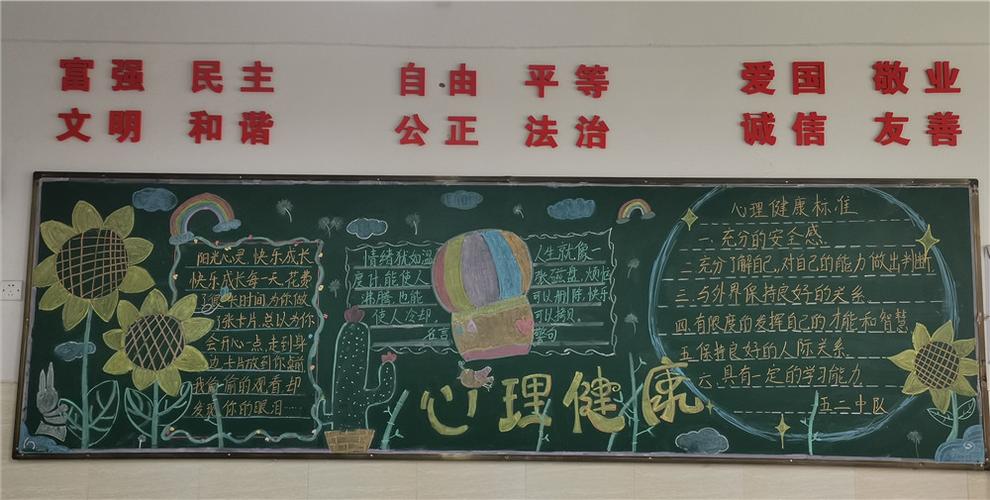 富强 民主 自由 平等 爱国 敬业
文明 和谐 公正 法治 诚信 友善
阳光心灵 快乐成长
快乐成长每一天,花费
了很长时间为你做
了张卡片,总以为你
会开心一点,走到身
边卡片放到你桌前
我偷偷的观看却
发现你的眼泪……
情绪犹如温
度计,能使人
沸腾,也能
使人冷却
人生就像一
张磁盘,烦恼
可以删除,快乐
可以拷贝
警句
心理健康
心理健康标准
一.充分的安全感
二.充分了解自己,对自己的能力做出判断
三.与外界保持良好的关系
四.有限度的发挥自己的才能和智慧
五.保持良好的人际关系
六.具有一定的学习能力
五二中队